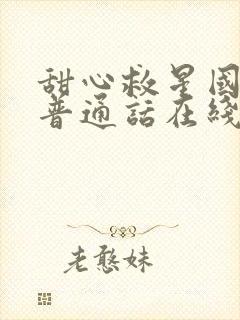 甜心救星國
普通話在綫
老憨妹